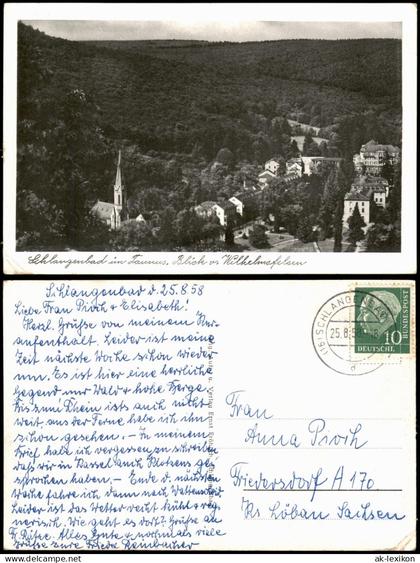 Schlangenbad im Taunus. Blick v. Wilhelmsfelsen
Schlangenbad d. 25.8.58
Liebe Frau Pioch & Elisabeth!
Herzl. Grüße von meinem Kur-
aufenthalt. Leider ist meine
Zeit nächste Woche schon wieder
um. Es ist hier eine herrliche
Gegend nur Wald & hohe Berge.
Bis zum Rhein ists auch nicht
weit aus der Ferne habe ich ihn
schon gesehen. – In meinem
Brief habe ich vergessen zu schreiben
daß wir in Kassel auch
sprochen haben. – Ende d. nächsten
Woche fahre ich dann nach
Leider ist das Wetter recht kühl & reg-
nerisch. Wie geht es dort? Grüße an
Fr. Alles Gute & nochmals viele
Grüße Eure Frieda
(16) SCHLANGENBAD
25.8.58
d
DEUTSCHE BUNDESPOST
10
Frau
Anna Pioch
Friedersdorf A 170
Krs Löbau Sachsen
u. Verlag Ernst
ak-lexikon.com